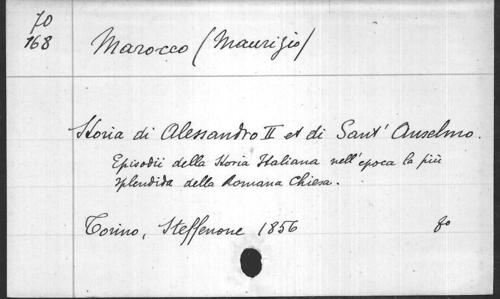 70
168
Marocco (Maurizio)
Storia di Alessandro II et di Sant' Anselmo.
Episodii della Storia Italiana nell'epoca la più
splendida della Romana Chiesa.
Torino, Steffenone 1856 fo